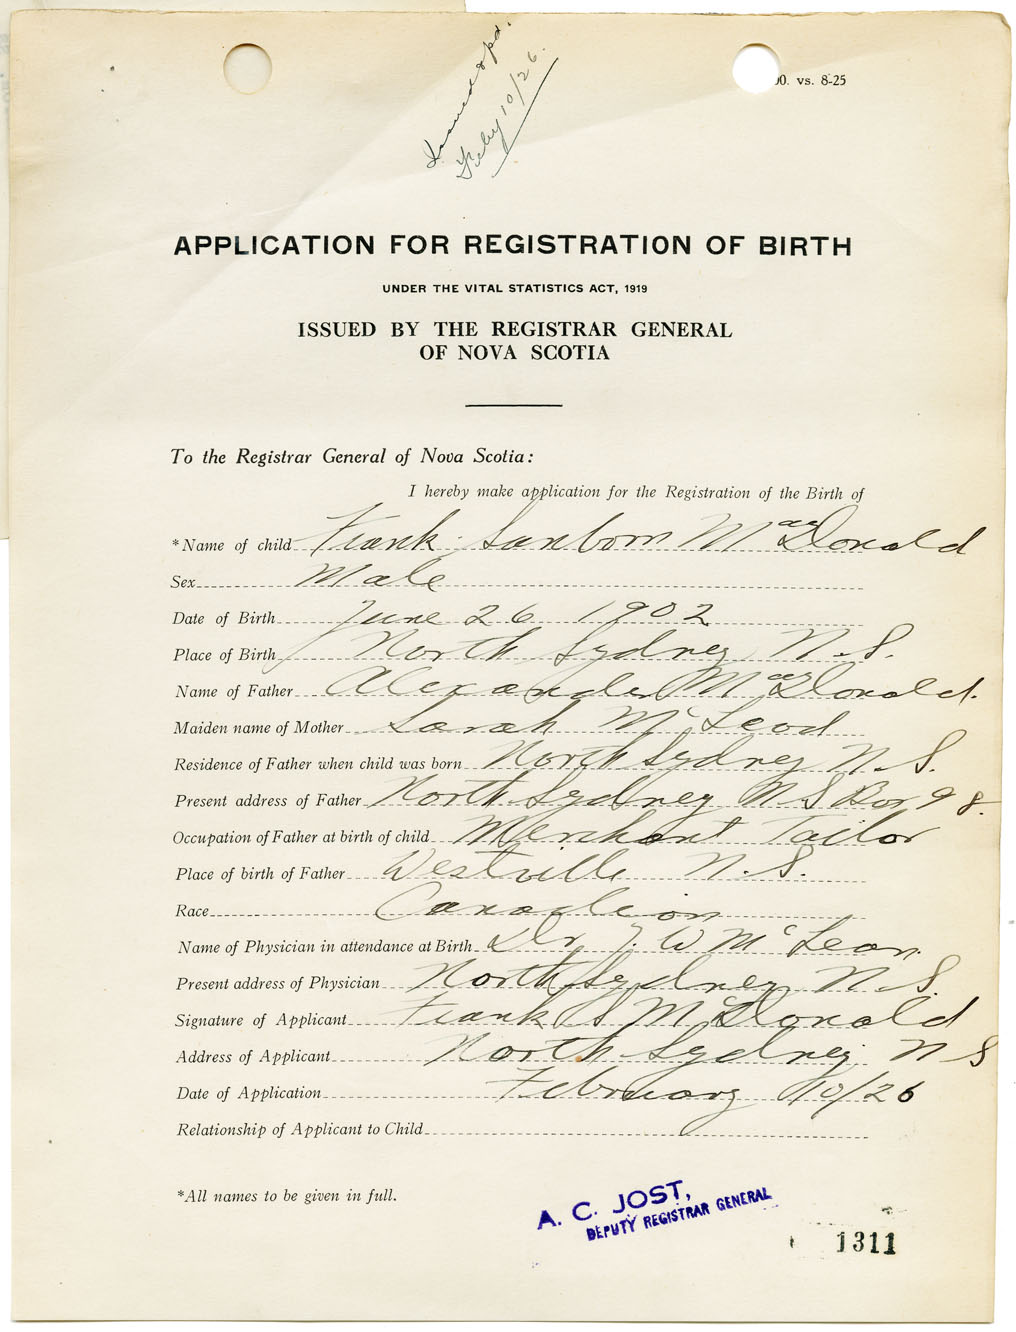 Issued & pd.
Feby 10/26.
00. vs. 8-25
APPLICATION FOR REGISTRATION OF BIRTH
UNDER THE VITAL STATISTICS ACT, 1919
ISSUED BY THE REGISTRAR GENERAL
OF NOVA SCOTIA
To the Registrar General of Nova Scotia:
I hereby make application for the Registration of the Birth of
*Name of child Frank Sanborn MacDonald
Sex Male
Date of Birth June 26 1902
Place of Birth North Sydney N.S.
Name of Father Alexander MacDonald.
Maiden name of Mother Sarah McLeod
Residence of Father when child was born North Sydney N.S.
Present address of Father North Sydney N S Box 98.
Occupation of Father at birth of child Merchant Tailor
Place of birth of Father Westville N.S.
Race Canadian
Name of Physician in attendance at Birth Dr. J. W McLean.
Present address of Physician North Sydney N.S.
Signature of Applicant Frank S McDonald
Address of Applicant North Sydney N S
Date of Application February 10/26
Relationship of Applicant to Child
*All names to be given in full.
A. C. JOST,
DEPUTY REGISTRAR GENERAL
1311